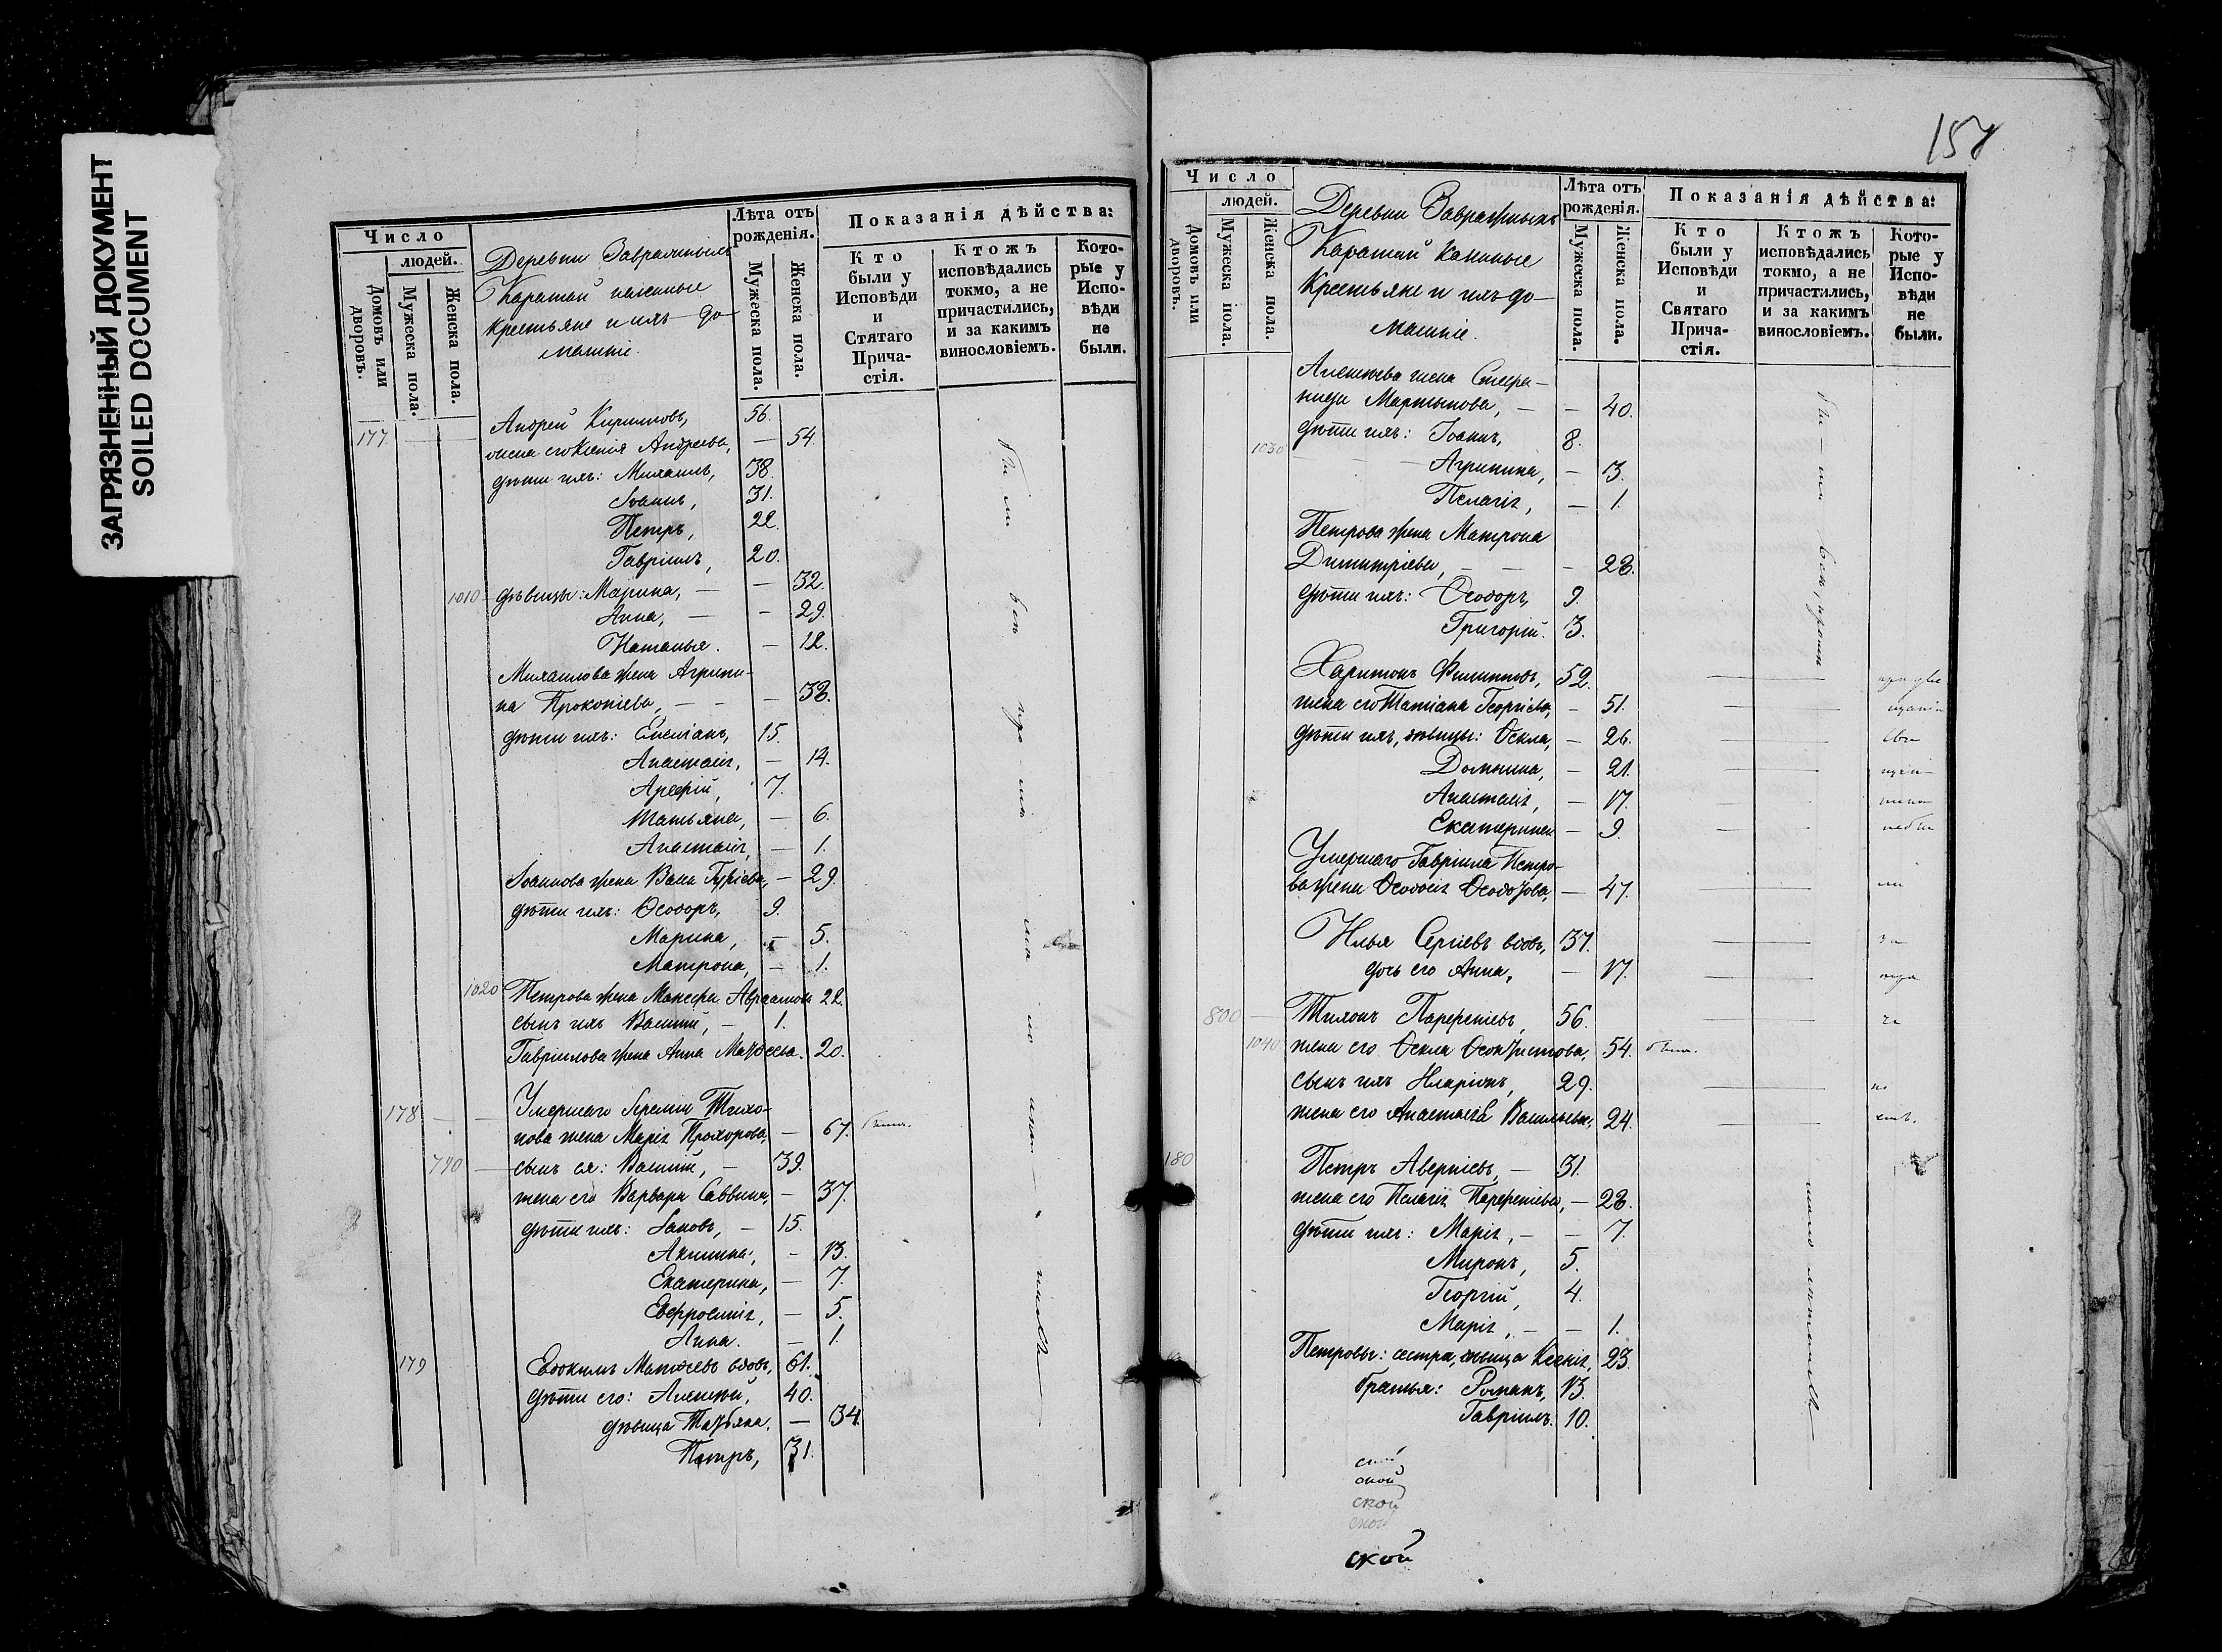 ЗАГРЯЗНЕННЫЙ ДОКУМЕНТ
SOILED DOCUMENT
Число
людей.
Домовъ или дворовъ.
Мужеска пола.
Женска пола.
Деревни
Каратай казенные
крестьяне и ихъ до-
машніе.
Лѣта отъ рожденія.
Мужеска пола.
Женска пола.
Показанія дѣйства:
Кто были у Исповѣди и Стятаго Прича-стія.
Ктожъ исповѣдались токмо, а не причастились, и за какимъ винословіемъ.
Кото-рые у Испо-вѣди не были.
Андрей Кириловъ, 56.
177 жена его Ксенія Андреева, — 54.
дѣти ихъ: Михаилъ, 38.
Іоаннъ, 31.
Петръ, 22.
Гавріилъ, 20.
1010 дѣвицы: Марина, — 32.
Анна, — 29.
Наталья. — 12.
Михаилова жена Агрипи-
на Прокопіева, — 38.
дѣти ихъ: 15.
Анастасія, — 14.
Арефій, 7.
Татьяна, — 6.
Анастасія, — 1.
Іоаннова жена Васса Гуріева, — 29.
дѣти ихъ: Ѳеодоръ, 9.
Марина, — 5.
Матрона, — 1.
1020 Петрова жена 22.
сынъ ихъ Василій, — 1.
Гавріилова жена Анна 20.
Умершаго Тихо-
178 нова жена Марія Прохорова, — 67. была.
790 сынъ ея: Василій, — 39.
жена его Варвара Саввина, — 37.
дѣти ихъ: Іаковъ, — 15.
Акилина, — 13.
Екатерина, — 7.
Евфросинія, — 5.
Анна. — 1.
179 Евдокимъ вдовъ, 61.
дѣти его: Алексѣй, 40.
дѣвица Татьяна, — 34.
Петръ, 31.
158
Число
людей.
Домовъ или дворовъ.
Мужеска пола.
Женска пола.
Деревни
Каратай казенные
крестьяне и ихъ до-
машніе.
Лѣта отъ рожденія.
Мужеска пола.
Женска пола.
Показанія дѣйства:
Кто были у Исповѣди и Святаго Прича-стія.
Ктожъ исповѣдались токмо, а не причастились, и за какимъ винословіемъ.
Кото-рые у Испо-вѣди не были.
Алексѣева жена Стефа-
нида Мартынова, — — 40.
дѣти ихъ: Іоаннъ, 8.
1030 Агрипина, — 3.
Пелагія, — 1.
Петрова жена Матрона
Димитріева, — — — 28.
дѣти ихъ: Ѳеодоръ, 9.
Григорій. 3.
Харитонъ Филипповъ, 52.
жена его Татіана Георгіева, — 51.
дѣти ихъ, дѣвицы: Ѳекла, — 26.
Домнина, — 21.
Анастасія, — 17.
Екатерина — 9.
Умершаго Гавріила Петро-
ва жена Ѳеодосія Ѳеодорова, — 47.
Илья Сергіевъ вдовъ, 37.
дочь его Анна, — 17.
800 Тихонъ Парфеніевъ, 56.
1040 жена его Ѳекла Ѳеоктистова, 54. была.
сынъ ихъ Иларіонъ, 29.
жена его Анастасія Васильева, 24.
180 Петръ Аверкіевъ, — 31.
жена его Пелагія Парфеніева, — 28.
дѣти ихъ: Марія, — — 7.
Миронъ, 5.
Георгій, 4.
Марія, — — 1.
Петровы: сестра, дѣвица Ксенія, 23.
братья: Романъ, 13.
Гавріилъ. 10.
ской
ской
ской
ской
ской